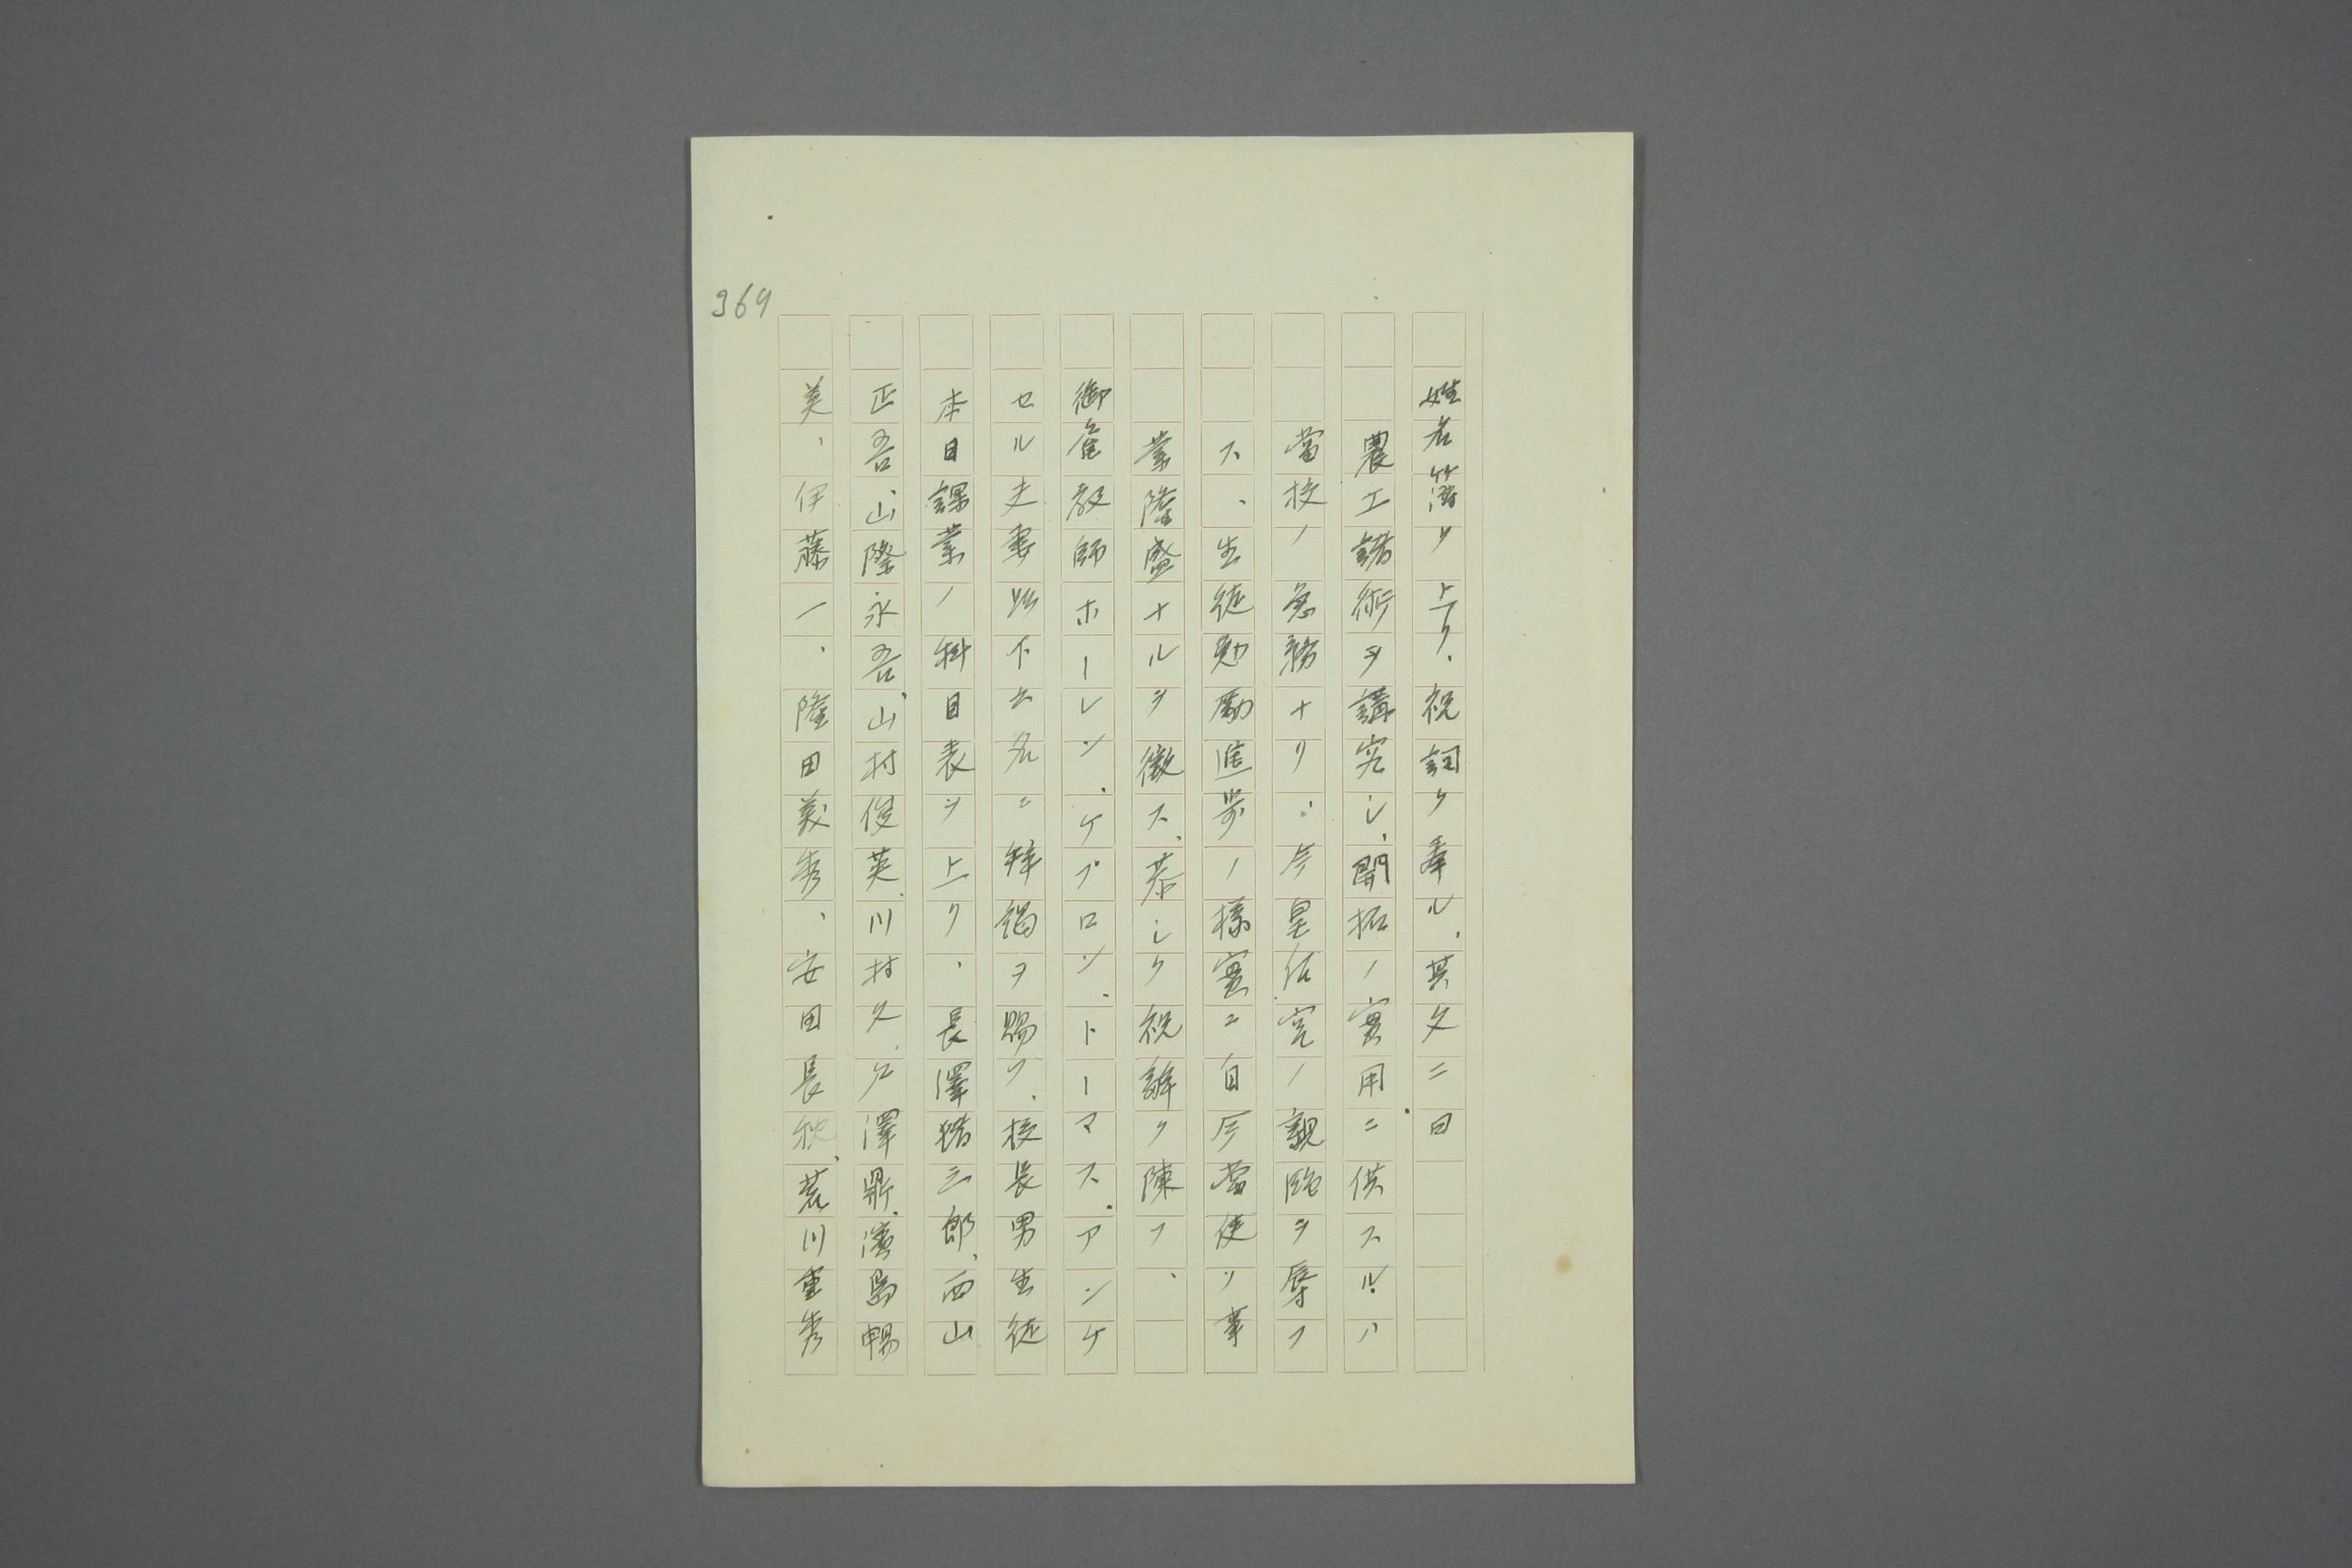 姓名簿ヲ上ク、祝詞ヲ奉ル、其文ニ曰
農工諸術ヲ講究シ、開拓ノ實用ニ供スルハ
當校ノ急務ナリ、今皇后宮ノ親臨ヲ辱フ
ス、生徒勉勵進歩ノ樣實ニ自今當使ノ事
業隆盛ナルヲ徴ス、恭シク祝辭ヲ陳フ、
御雇教師ホーレン、ケプロン、トーマス、アンケ
セル夫妻以下七名ニ拜謁ヲ賜フ、校長男生徒
本日課業ノ科目表ヲ上ク、長澤 三郎、西山
正吾、山際永吾、山村俊英、川村久 、 澤鼎、濱島暢
美、伊藤一、隆田義秀、安田長秋、荒川重秀
369